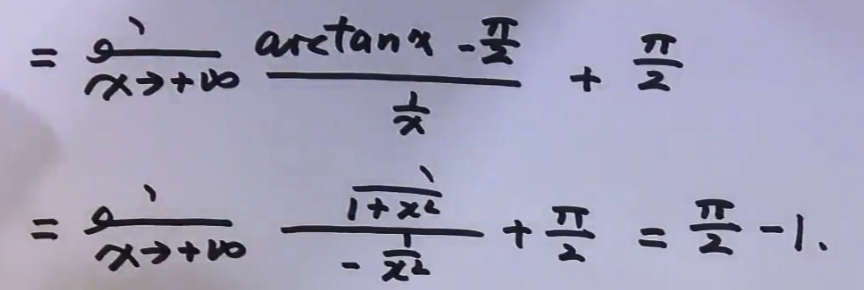 = lim x→+∞ (arctan x - π/2) / (1/x) + π/2
= lim x→+∞ (1/(1+x²)) / (-1/x²) + π/2 = π/2 - 1.